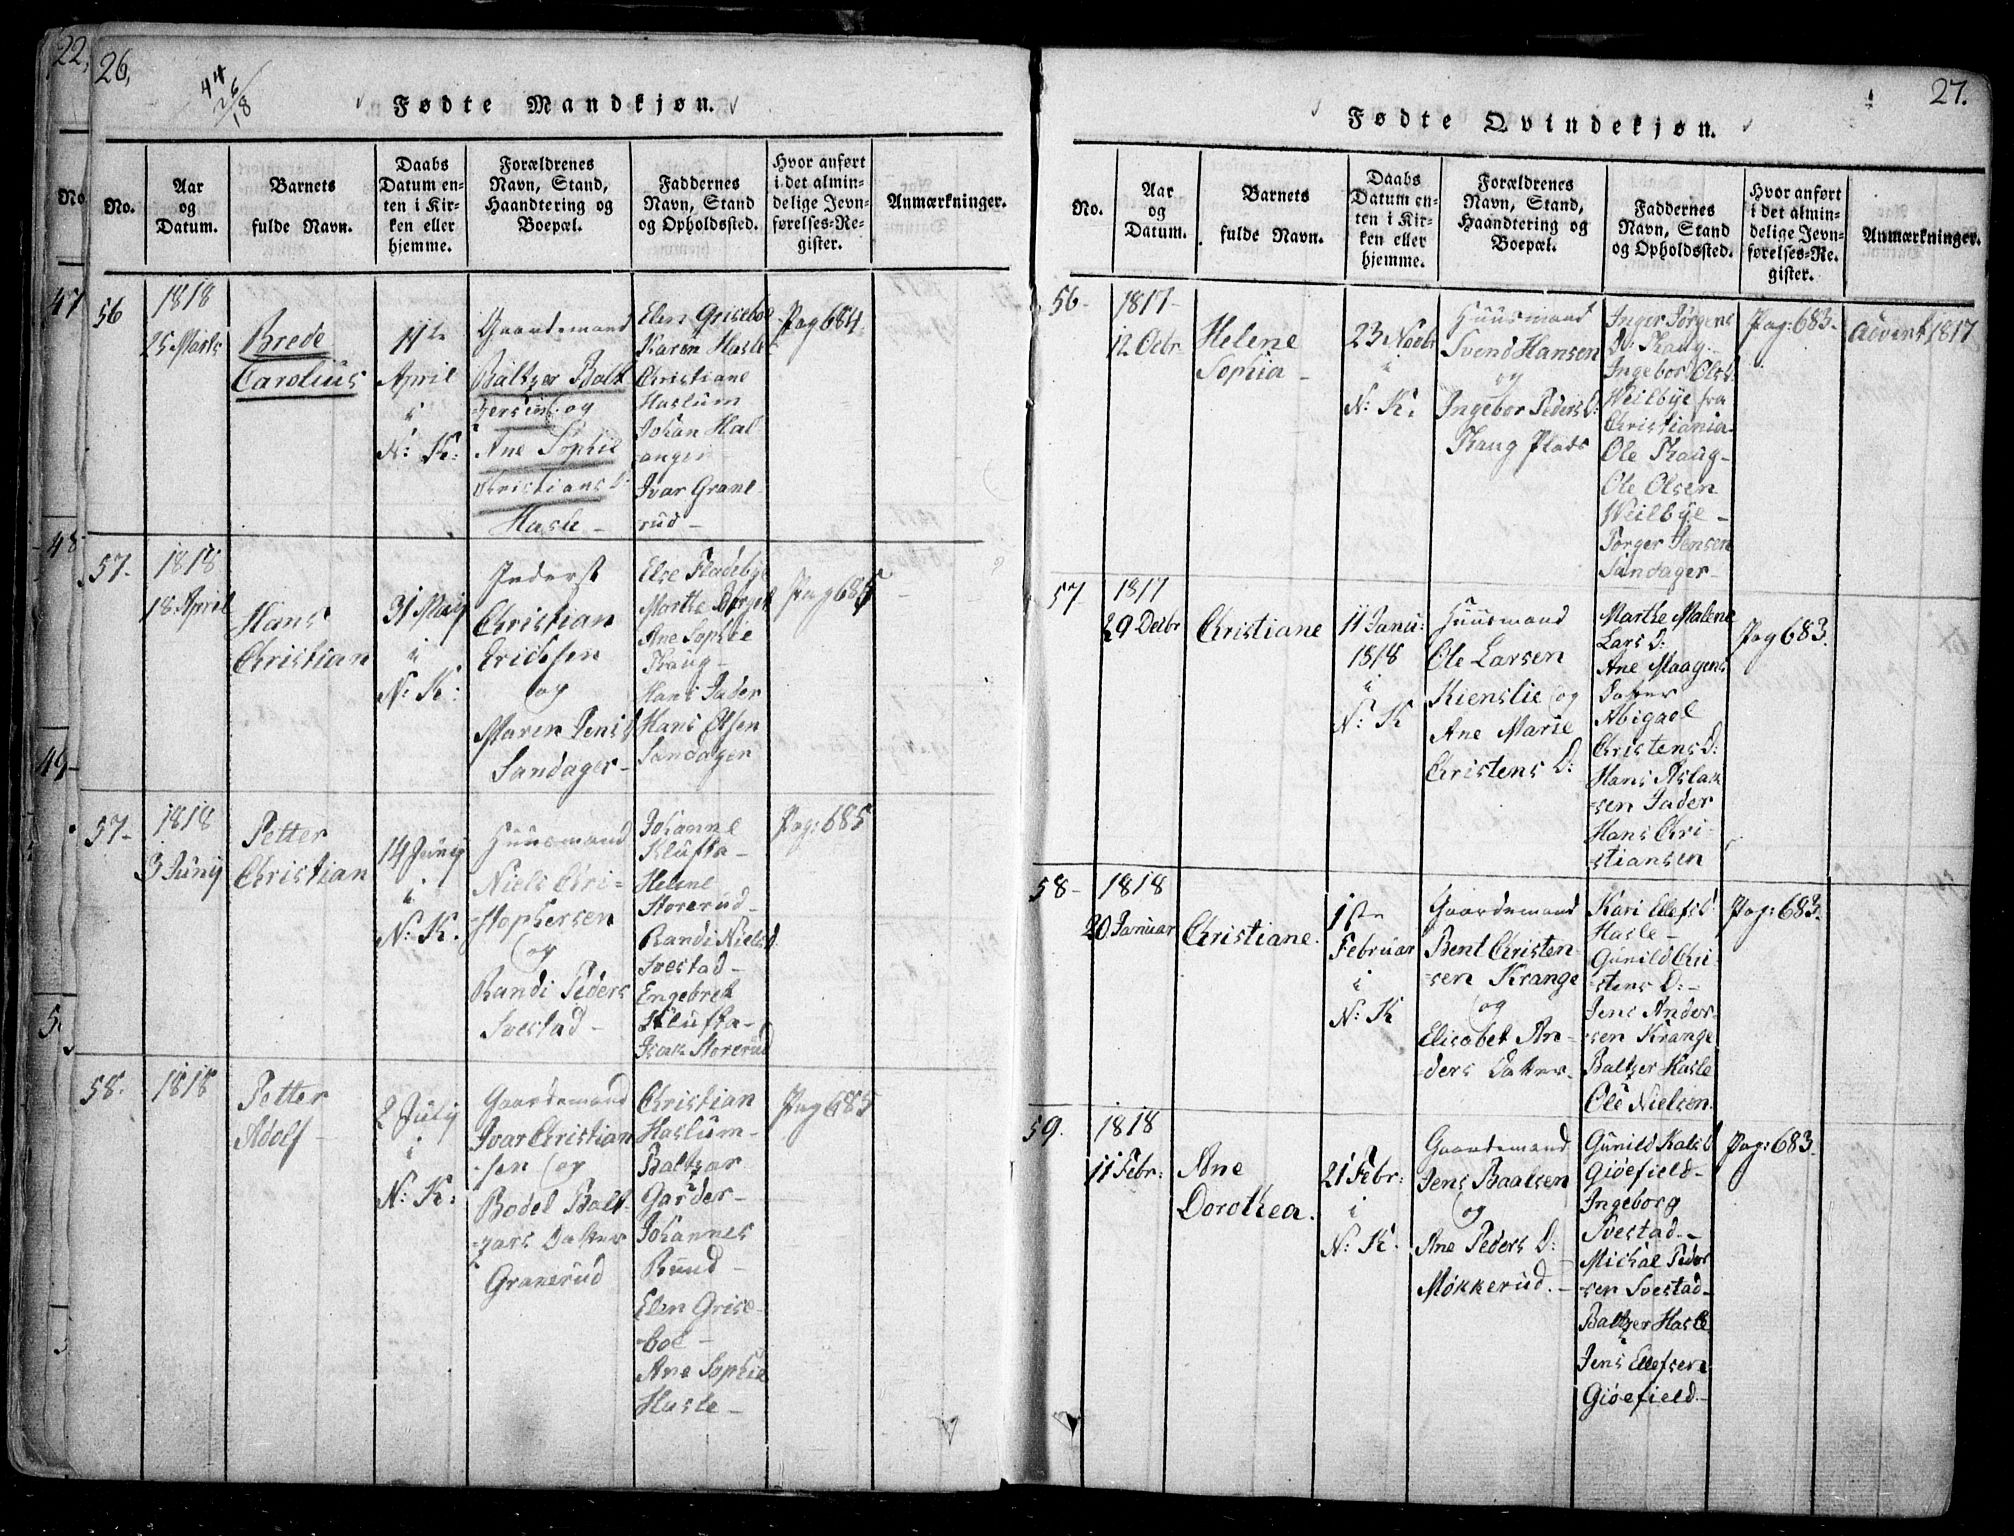 22,
26,
44
26/18
Fødte Mandkjøn.
No.
Aar
og
Datum.
Barnets
fulde Navn.
Daabs
Datum en-
ten i Kir-
ken eller
hjemme.
Forældrenes
Navn, Stand,
Haandtering og
Boepæl.
Faddernes
Navn, Stand
og Opholdssted.
Hvor anført
i det almin-
delige Jevn-
førelses-Re-
gister.
Anmærkninger.
No
47
48
49
56
1818
25 Marts
Brede
Carolius
11te
April
i
N: K:
Gaardemand
Baltzer Balt
zersen og
Ane Sophie
Christians D:
Hasle -
Elen Griseboe
Karen Hasle
Christiane
Haslum
Johan Hal
anger
Ivar Grane-
rud -
Pag 684.
57.
1818
18 April
Hans
Christian
31 Maij
i
N: K:
Inderst
Christian
Erichsen
og
Maren Jens D
Sandager -
Else Fladebye
Marthe Berget
Ane Sophie
Kaug -
Hans Jader
Hans Olsen
Sandager
Pag 685
57-
1818
3 Junij
Petter
Christian
14 Junij
i
N: K.
Huusmand
Niels Chri-
stophersen
og
Randi Peders
Svestad -
Johanne
Klufta -
Helene
Storerud -
Randi Niels d.
Svestad -
Engebret
Klufta -
Isak Storerud
Pag: 685
58.
1818
Petter
Adolf -
2 Julij
i
N: K:
Gaardemand
Ivar Christian
-sen og
Bodel Balt-
zars Datter
Granerud
Christian
Haslum -
Baltzar
Garder -
Johannes
Ruud -
Elen Grise-
boe -
Ane Sophie
Hasle -
Pag 685
27.
Fødte Qvindekjøn.
No.
Aar
og
Datum.
Barnets
fulde Navn.
Daabs
Datum en-
ten i Kir-
ken eller
hjemme.
Forældrenes
Navn, Stand,
Haandtering og
Boepæl.
Faddernes
Navn, Stand
og Opholdssted.
Hvor anført
i det almin-
delige Jevn-
førelses-Re-
gister.
Anmærkninger.
56-
1817-
12 Octbr
Helene
Sophia -
23 Novbr
i
N: K.
Huusmand
Svend Hansen
og
Ingebor Peders D:
Kaug Plads
Inger Jørgens
D: Kaug -
Ingebor Ols D.
Weilbye fra
Christiania -
Ole Kaug -
Ole Olsen
Weilbye -
Jørger Jensen
Sandager -
Pag: 683-
Advent 1817
57
1817
29 Decbr
Christiane
11 Janu:
1818
i
N: K
Huusmand
Ole Larsen
Kienslie og
Ane Marie
Christens D:
Marthe Malene
Lars D:
Ane Maagens
Datter
Abigael
Christens D:
Hans Aslak
-sen Jader
Hans Chri-
stiansen
Pag 683.
58-
1818
20 Januar
Christiane.
1ste
Februar
i
N: K
Gaardemand
Bent Christen-
-sen Krange
og
Elisabet An-
ders Datter -
Kari Ellefs D
Hasle -
Gunild Chri
stens D: -
Jens Ander-
-sen Krange
Baltzer Hasle
Ole Nielsen.
Pag: 683.
59.
1818
11 Febr:
Ane
Dorothea.
21 Febr:
i
N: K.
Gaardemand
Jens Baalsen
og
Ane Peders D:
Møkkerud. -
Gunild Kals D
Giøefield -
Ingeborg
Svestad -
Michal Peder
sen Svestad -
Baltzer Hasle
Jens Ellefsen
Giøefield -
Pag: 683.